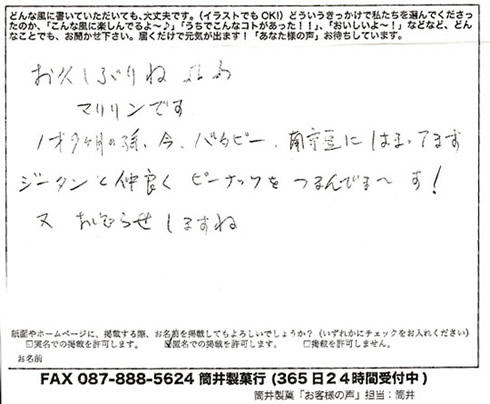 どんな風に書いていただいても、大丈夫です。(イラストでもOK!)どういうきっかけで私たちを選んでくださっ
たのか、「こんな風に楽しんでるよ～♪」「うちでこんなコトがあった！！」、「おいしいよ！」などなど、どん
なことでも、お聞かせ下さい。届くだけで元気が出ます！「あなた様の声」お待ちしています。
お久しぶりね
マリリンです
1才9ヶ月の孫、今、バタピー、南京豆にはまってます
ジータンと仲良くピーナッツをつまんでま～す！
又お知らせしますね
紙面やホームページに、掲載する際、お名前を掲載してもよろしいでしょうか？（いずれかにチェックをお入れください）
□実名での掲載を許可します。 ☒匿名での掲載を許可します。 □掲載を許可しません。
お名前
FAX 087-888-5624 筒井製菓行 (365日24時間受付中)
筒井製菓「お客様の声」担当：筒井